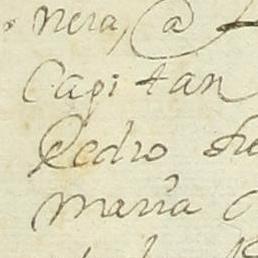 nera, @
Capitan
Pedro
maria